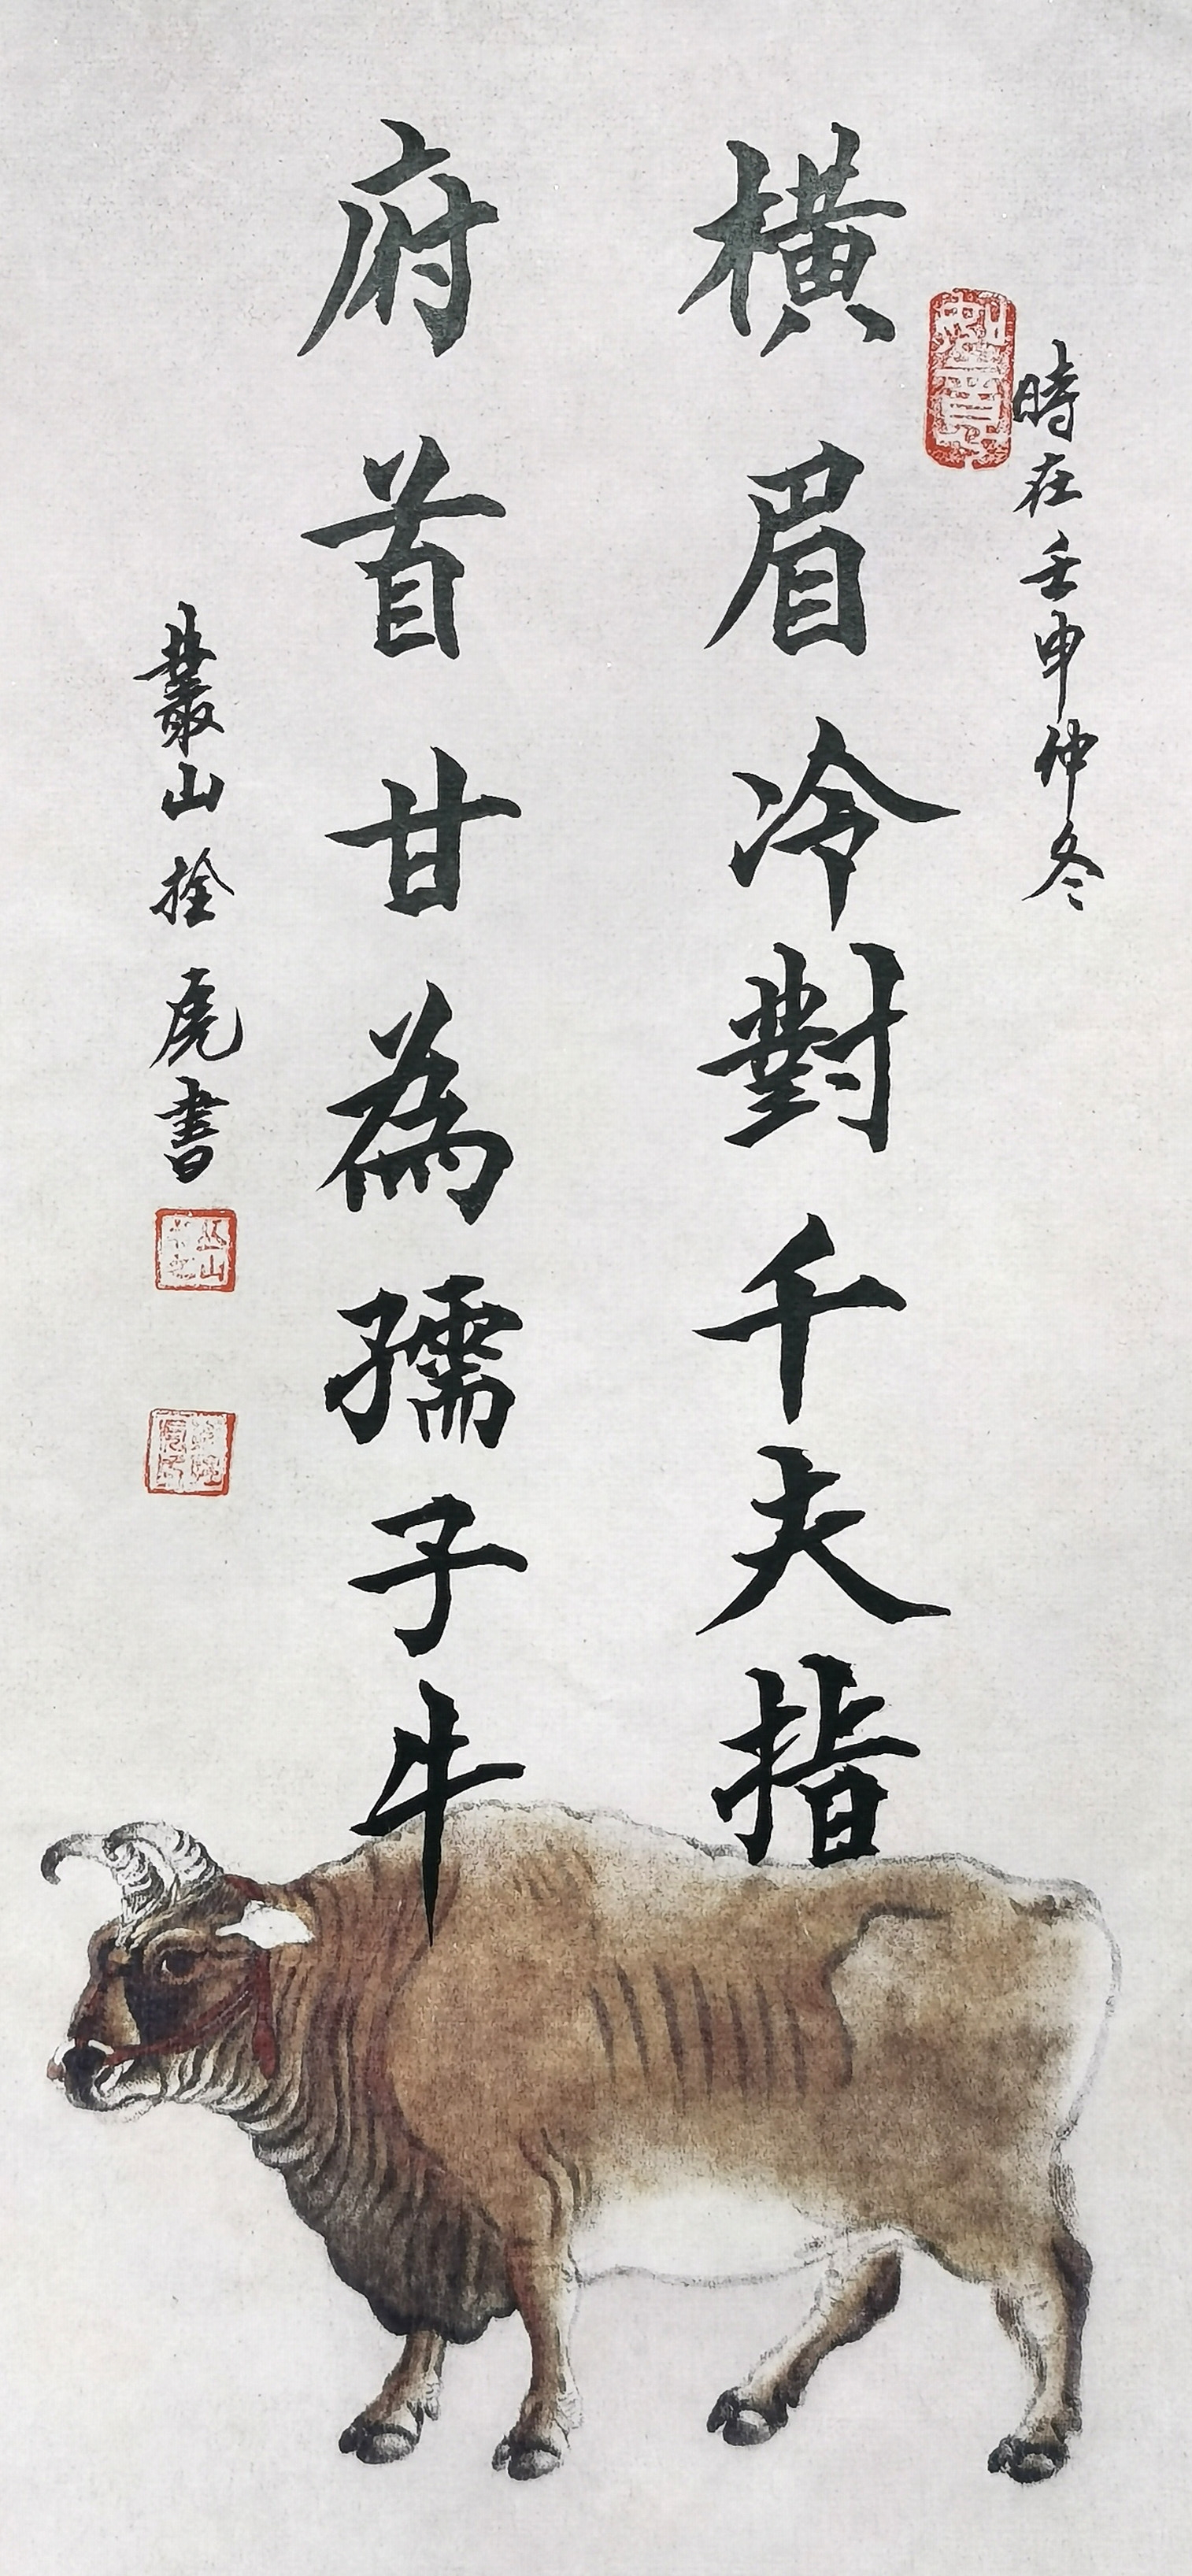 時在壬申仲冬
橫眉冷對千夫指
府首甘為孺子牛
叢山拴虎書